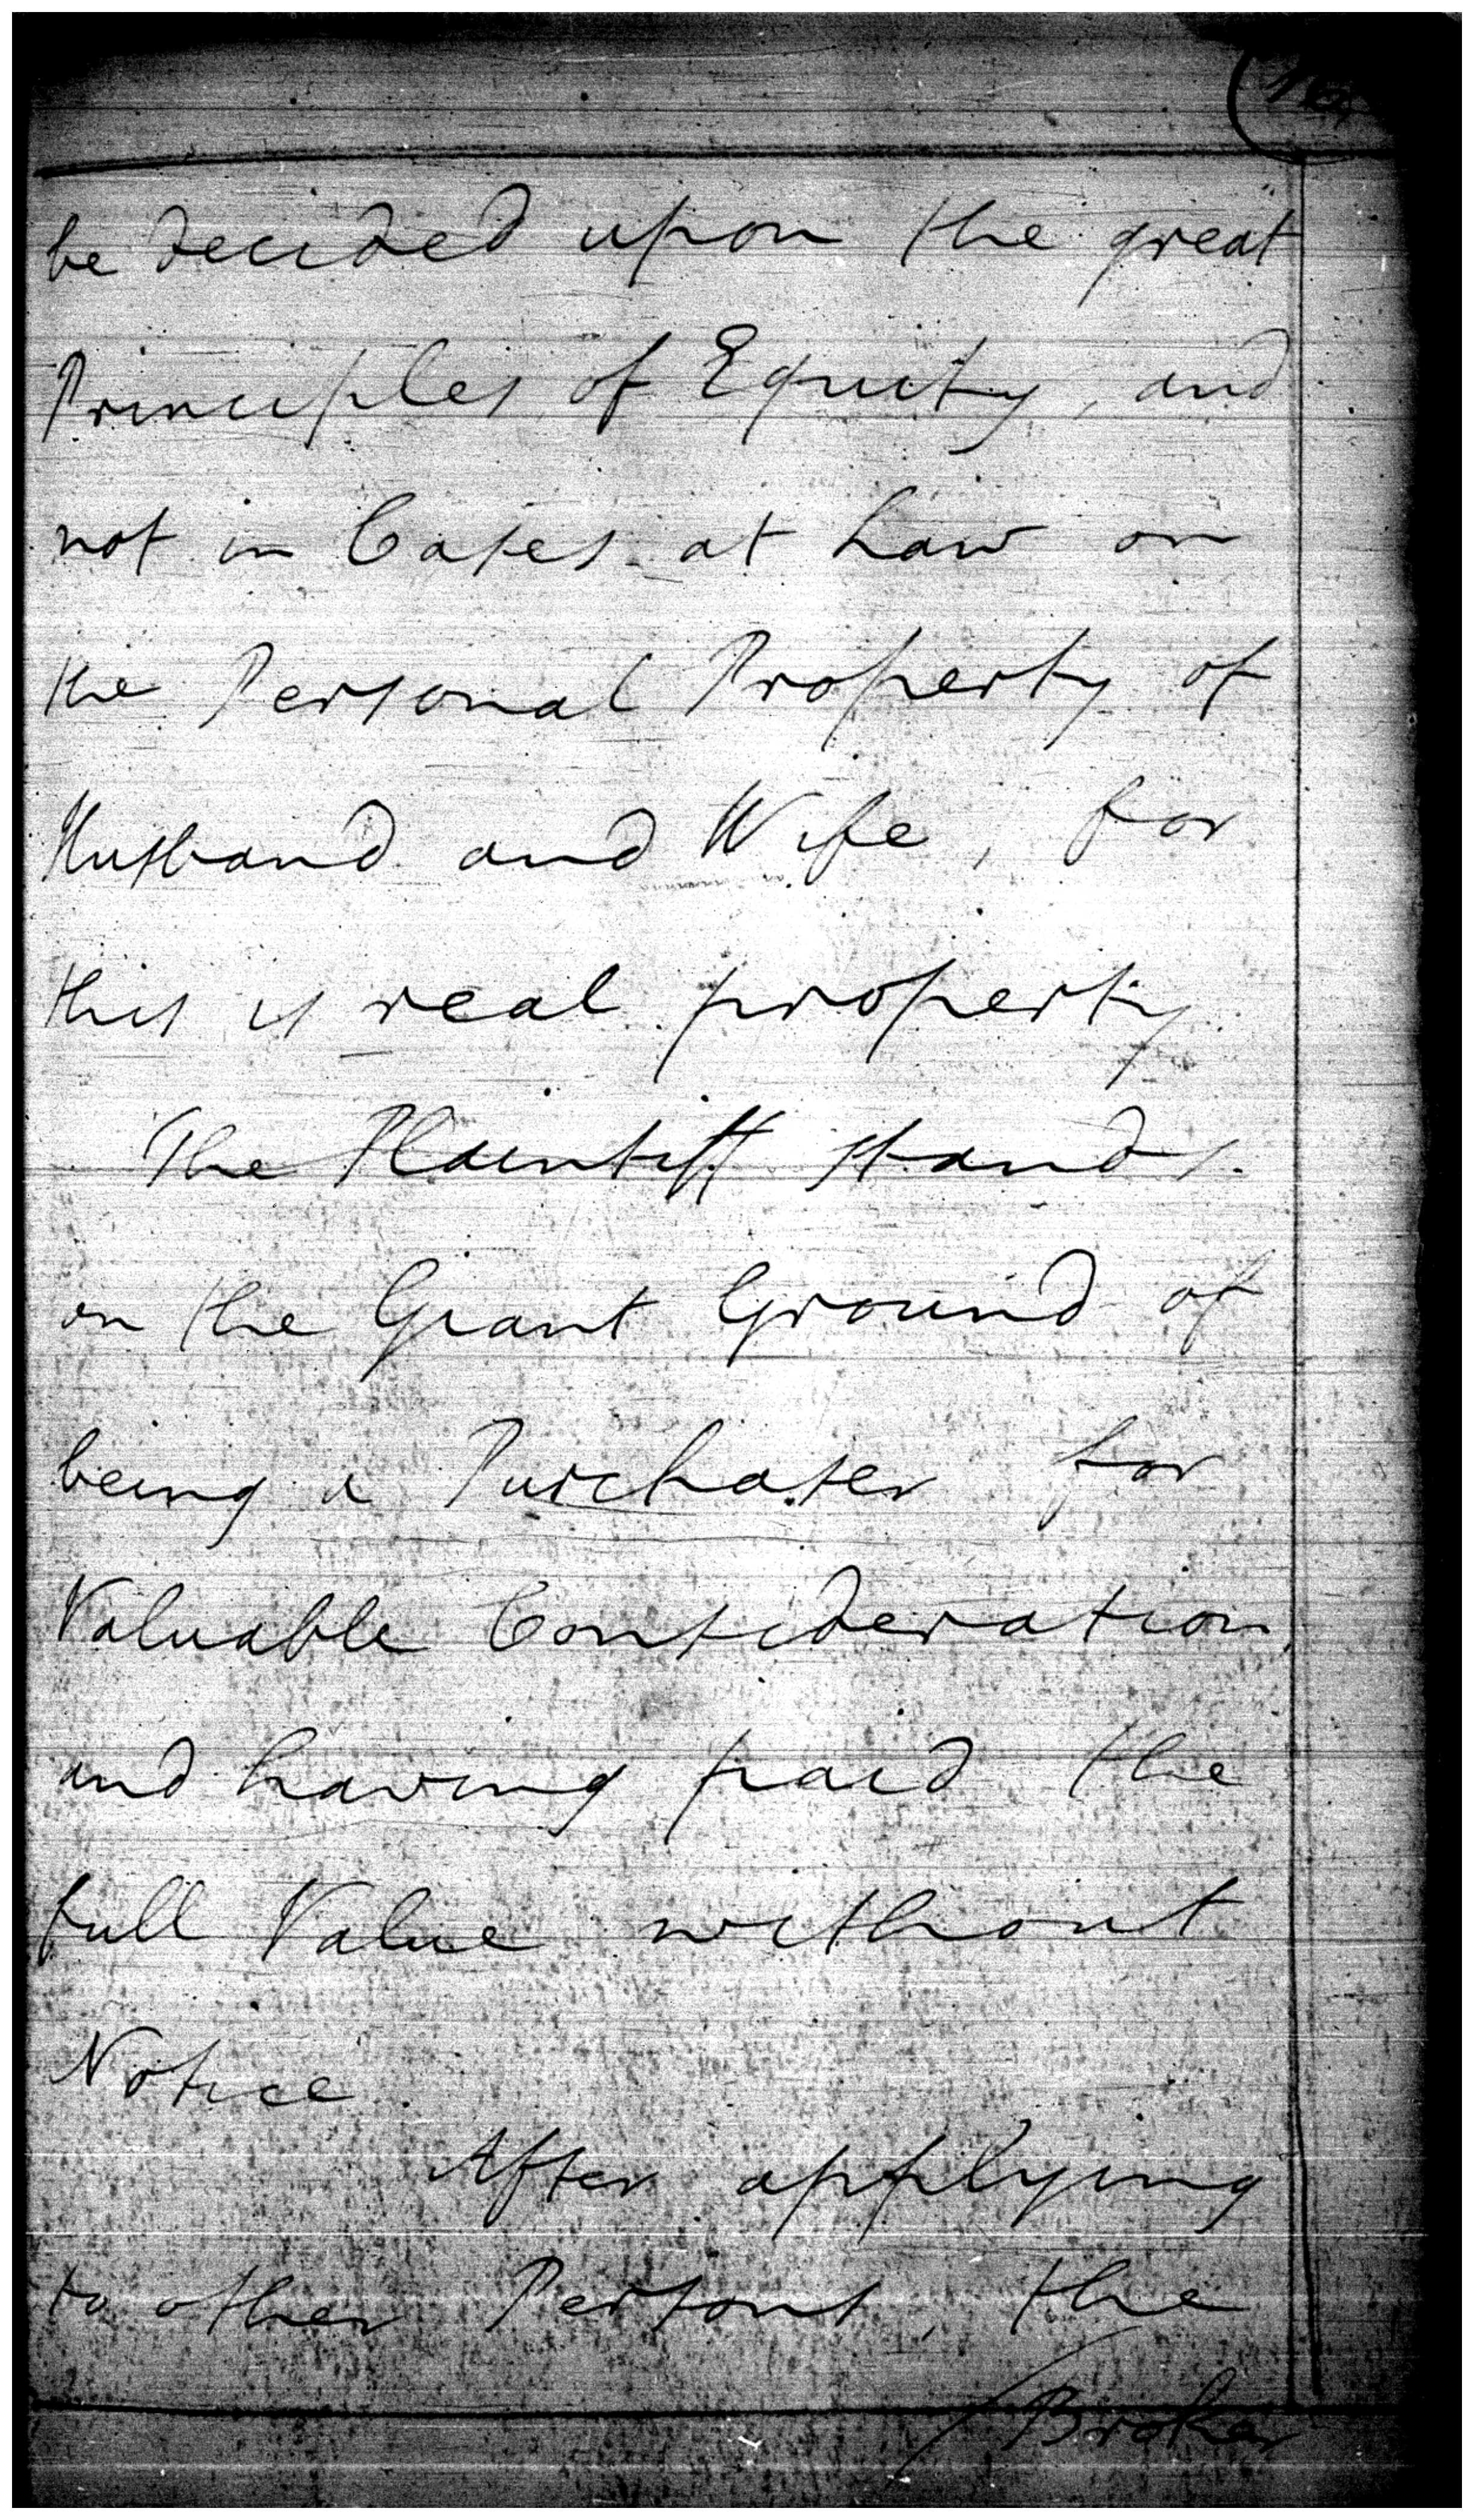 be decided upon the great
Principles of Equity, and
not in Cases at Law on
the Personal Property of
Husband and Wife, for
this is real property
The Plaintiff stands
on the Giant Ground of
being a Purchaser for
Valuable Consideration,
and having paid the
full Value without
Notice.
After applying
to other Persons, the
/Broker